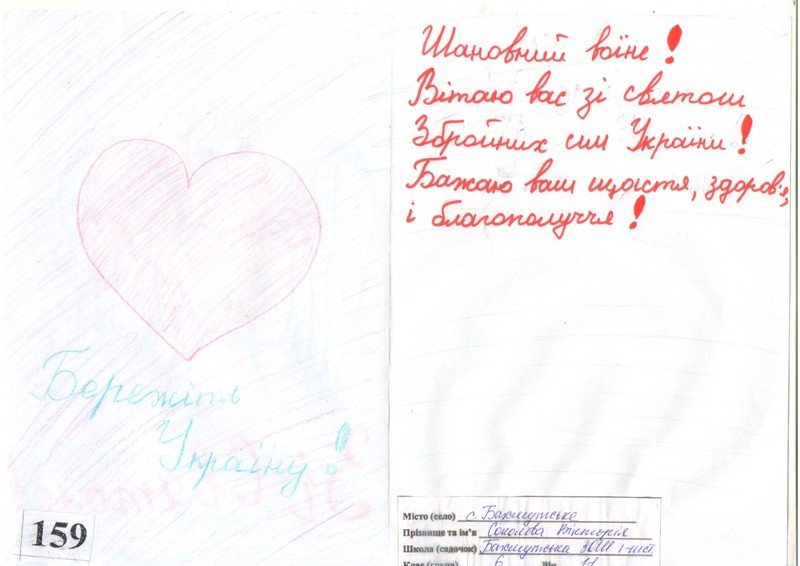 Бережіть
Україну!
159
Шановний воїне!
Вітаю вас зі святом
Збройних сил України!
Бажаю вам щастя, здоров'я,
і благополуччя!
Місто (село) с. Бахмутське
Прізвище та ім'я Соколова Вікторія
Школа (садочок) Бахмутська ЗОШ І-ІІІ ст.
Клас (група) 6 Вік 11